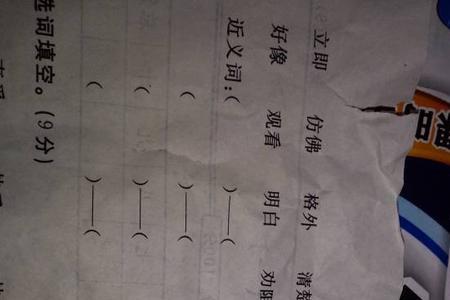 立即 仿佛 格外 清楚
好像 观看 明白 劝阻
近义词:( )——(
( )——(
( )——(
( )——(
选词填空。(9分)